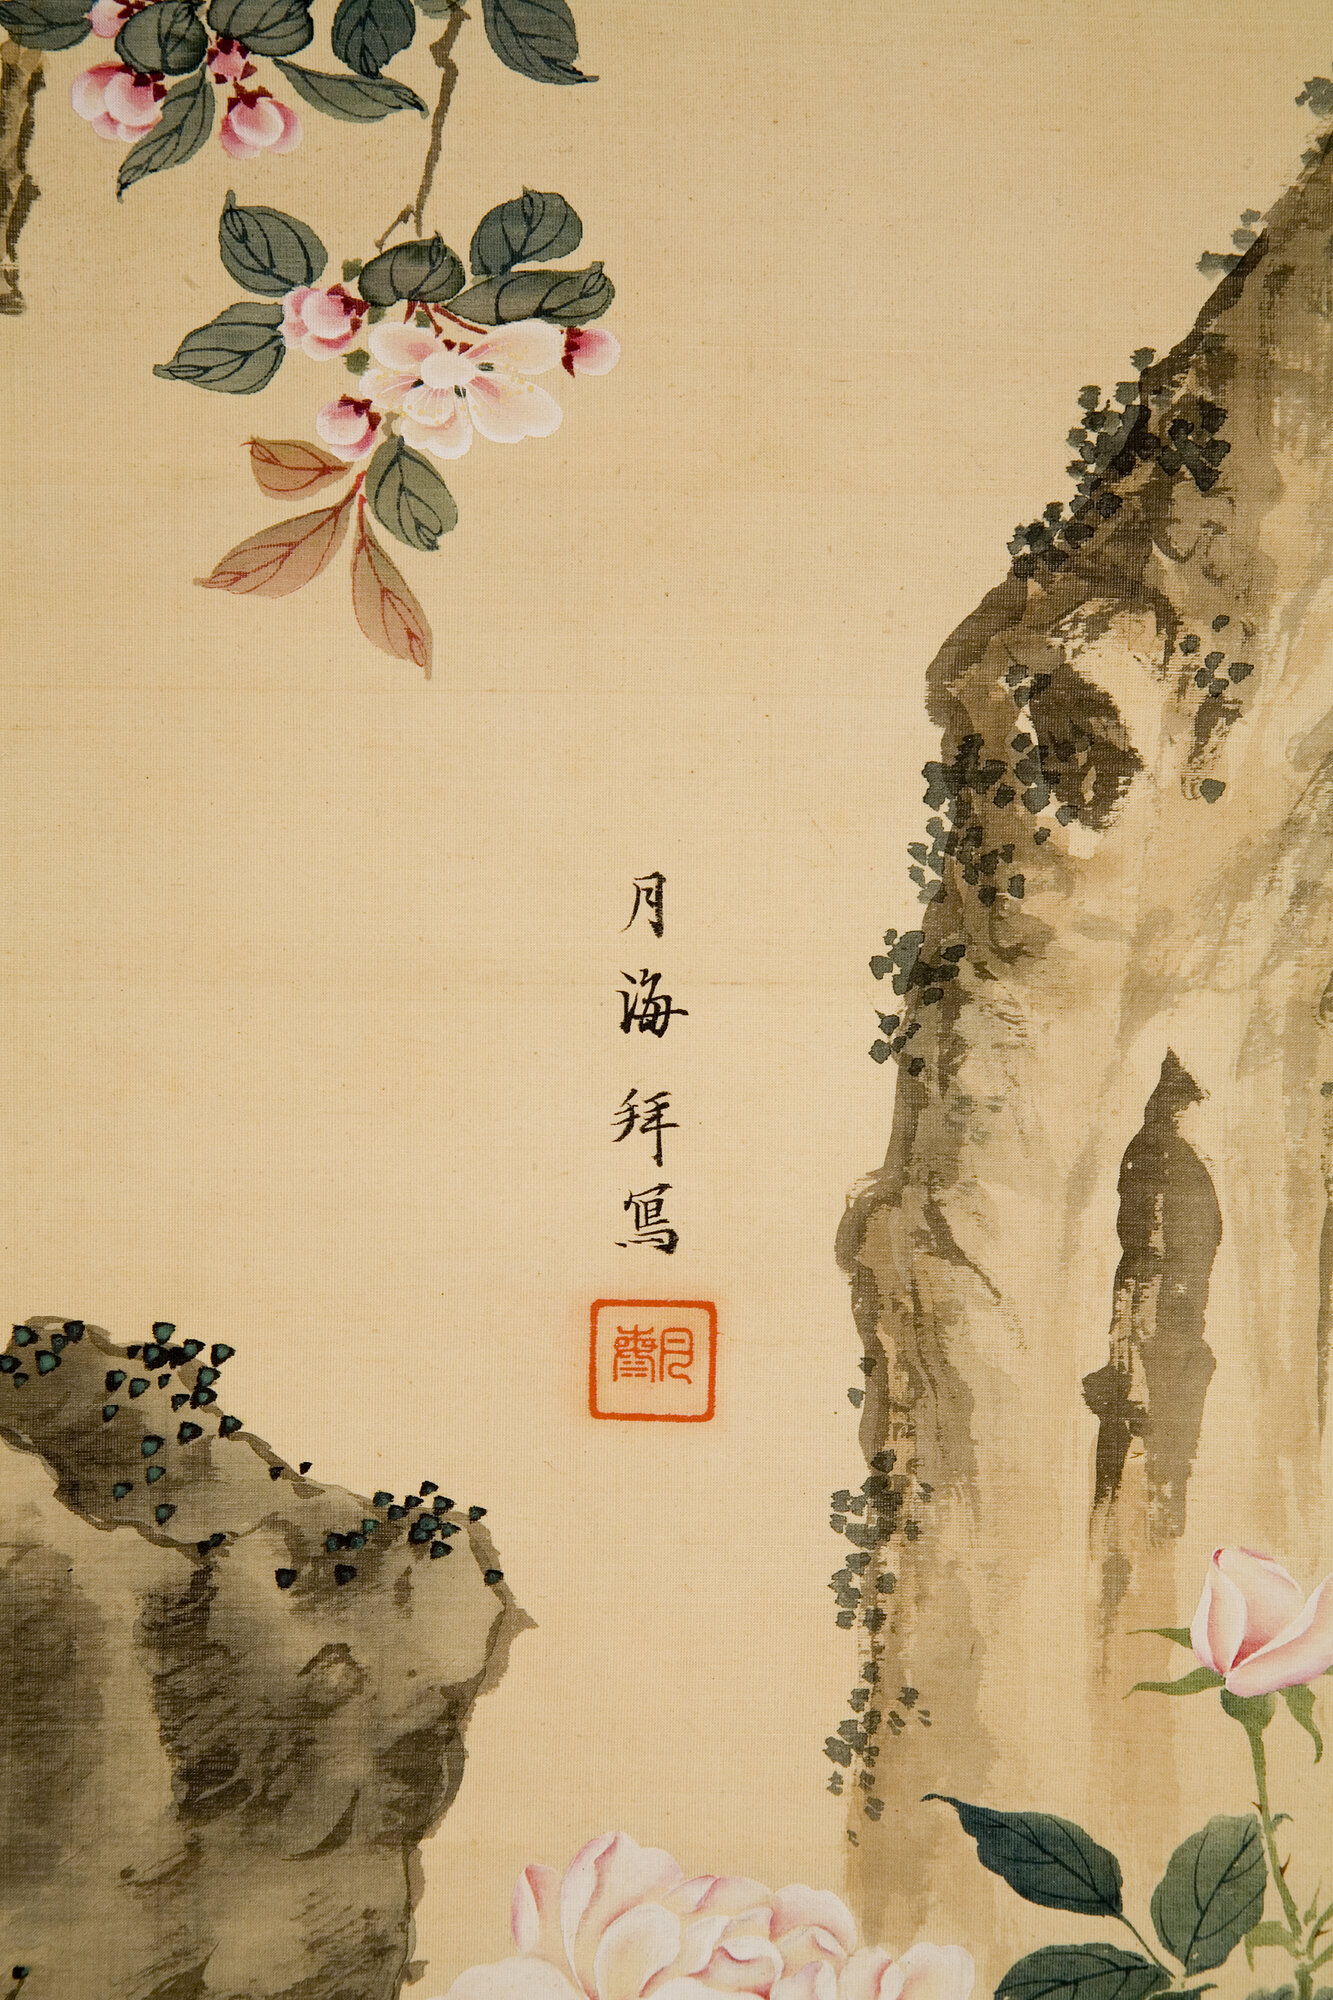 月海拜寫